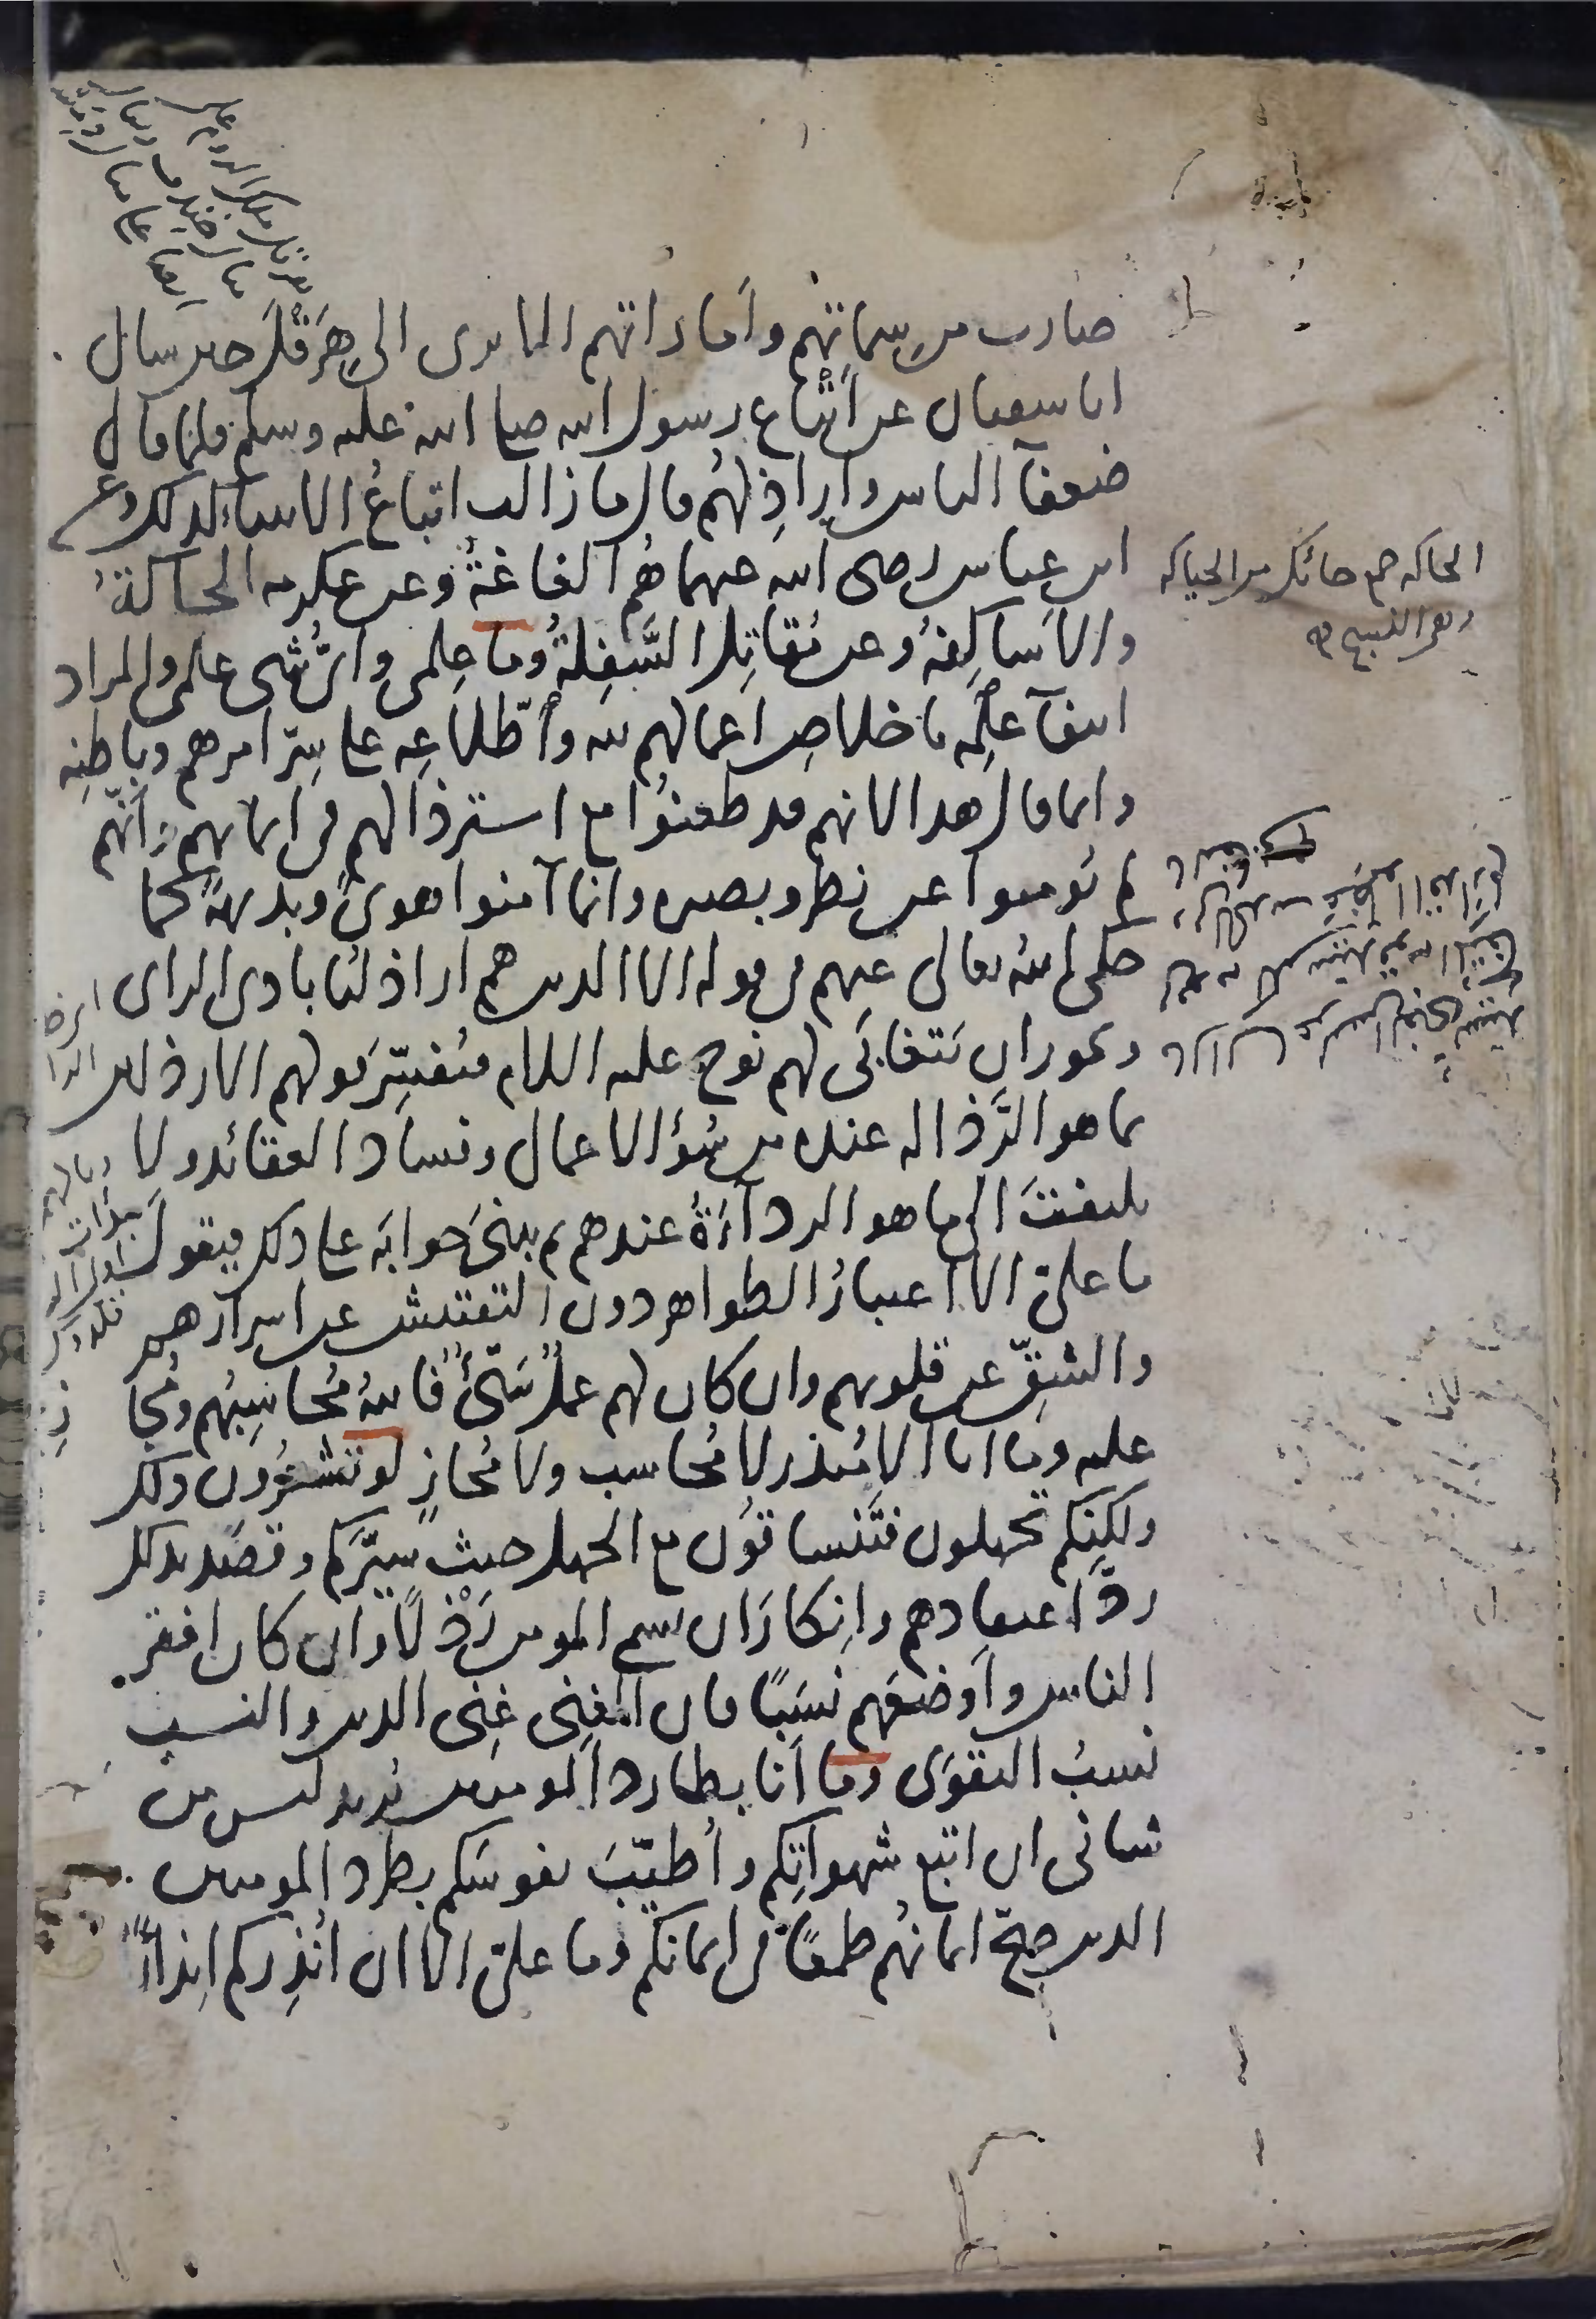 صارت من سماتهم وأماراتهم الا ترى الى هِرَقْلَ حين سال
ابا سفيان عن أَتْباع رسول الله صلى الله عليه وسلم فلما قال
ضعفآ الناس وأراذِلهُم قال ما زالت اتباعُ الانبياء كذلك وعن
ابن عباس رضى الله عنهما هُم الغاغَةُ وعن عكرمه الحاكةُ
والأساكِفةُ وعن مُقاتِل السَّفِلةُ وما عِلمى وأىّ شى علمى والمراد
انتفآ علمِه باخلاصِ اعمالهم لله وأطّلاعِه على سِرّ امرهم وباطنِه
وانما قال هدا لانهم قد طعنوُا مع استرذالهم فى ايمانهم وأنّهم
لم يُومنوا عن نظر وبصيره وانما آمنوا هوىً وبديهةً كما
حكى اللهُ تعالى عنهم فى قوله الا الدين هم اراذلنُا بادى الراى
ويجوز ان يَتَغابَى لهم نوح عليه السلام فيُفَسِّرَ قولهم الارذلين
بما هو الرَّذاله عنده من سُؤ الاعمال وفساد العقائد ولا
يلتفتَ الى ما هو الردآءَةُ عندهم ثم يبنىَ جوابَه على دلك فيقول
ما علىّ الا اعتبارُ الظواهر دون التفتيش عن اسرارهم
والشقِّ عن قلوبهم وان كان لهم عملٌ سَيّئٌ فاللهُ مُحاسِبُهم ومُجازِ
عليه وما انا الا مُنذر لا مُحاسب ولا مُجازٍ لو تشعُرُون دلك
ولكِنّكم تجهلون فتَنساقوُن مع الجهل حيث سيّرَكم وقصَد بدلك
ردَّ اعتقادهم وإنكارَ ان يسمى المومن رَذْلًا وان كان افقر
الناس وأوضعَهم نسَبًا فان الغِنى غِنى الدين والنسب
نسبُ التقوى وما أنا بطارد المومنين يُريد ليس من
شانى ان اتبع شهواتِكم وأُطيّبَ نفوسَكم بطرد المومنين
الدين صحّ ايمانهُم طمعًا فى ايمانكم وما علىّ الا ان أُنذِركم إنذارًا
الحاكه جمع حائك من الحياكه
وهى النسيج